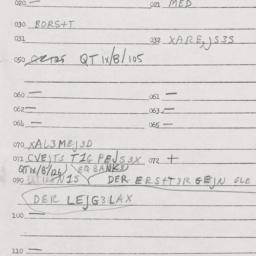 020 — 021 MED
030 BORS+T
031 032 XARE,JS3S
050 QT IX/B/105
060 — 061 —
062 — 063 —
064 — 065 —
070 XAL3MEJ3D
071 CVEJTS T1G PEJS3X 072 +
QT IX/B/126) EQBANKX)
090 N1S DER ERS+T3R GEJN GLE
DER LEJG3LAX
100 —
110 —